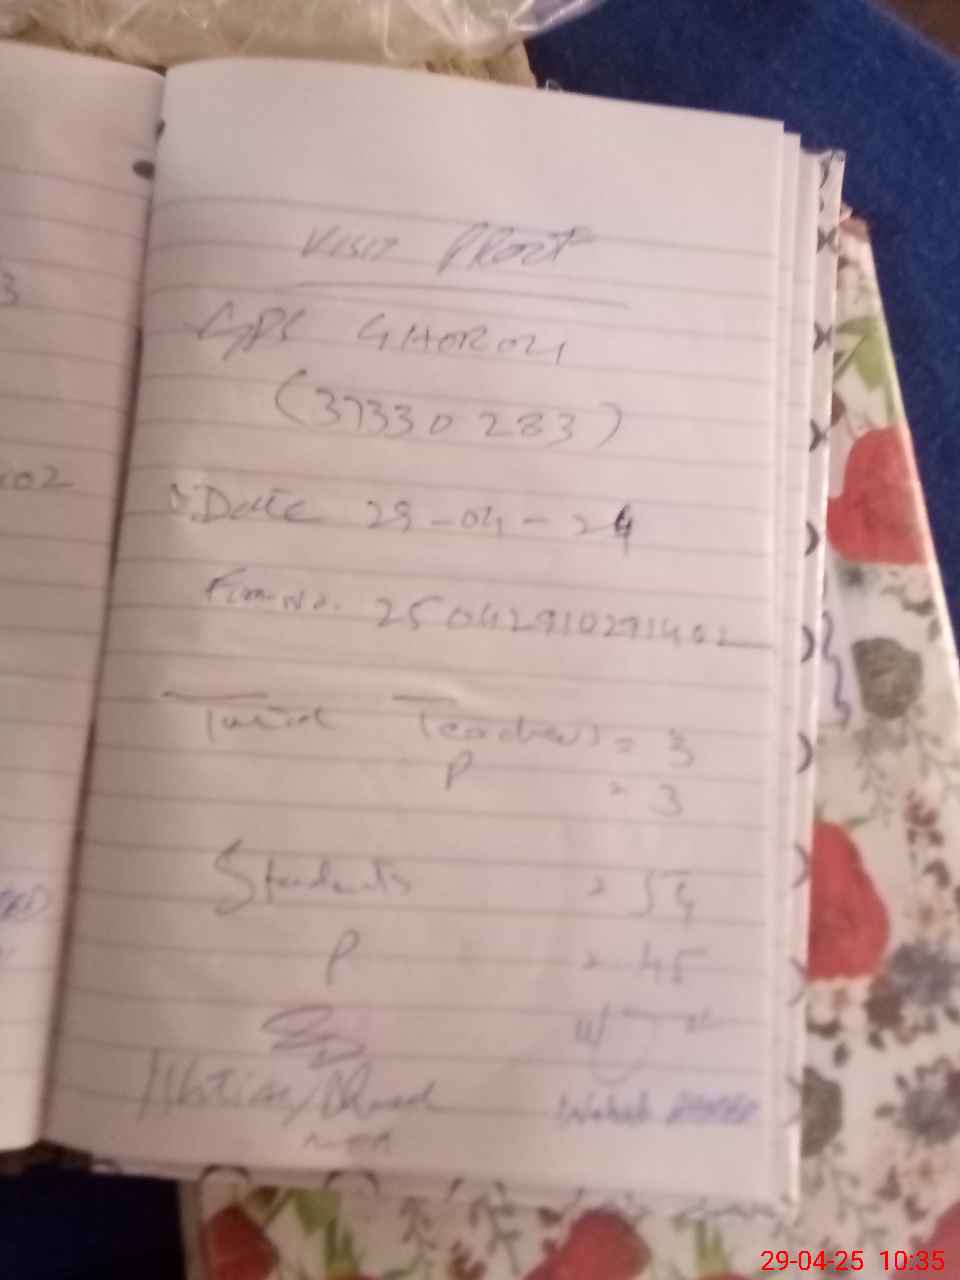 3
102
VISIT PROOF
GPS GHOR 04
(37330283)
Date 29-04-24
Form No. 25042910291402
Teachers = 3
P = 3
Students = 54
P = 45
Ahmed
MEA
Wahab AHMED
29-04-25 10:35